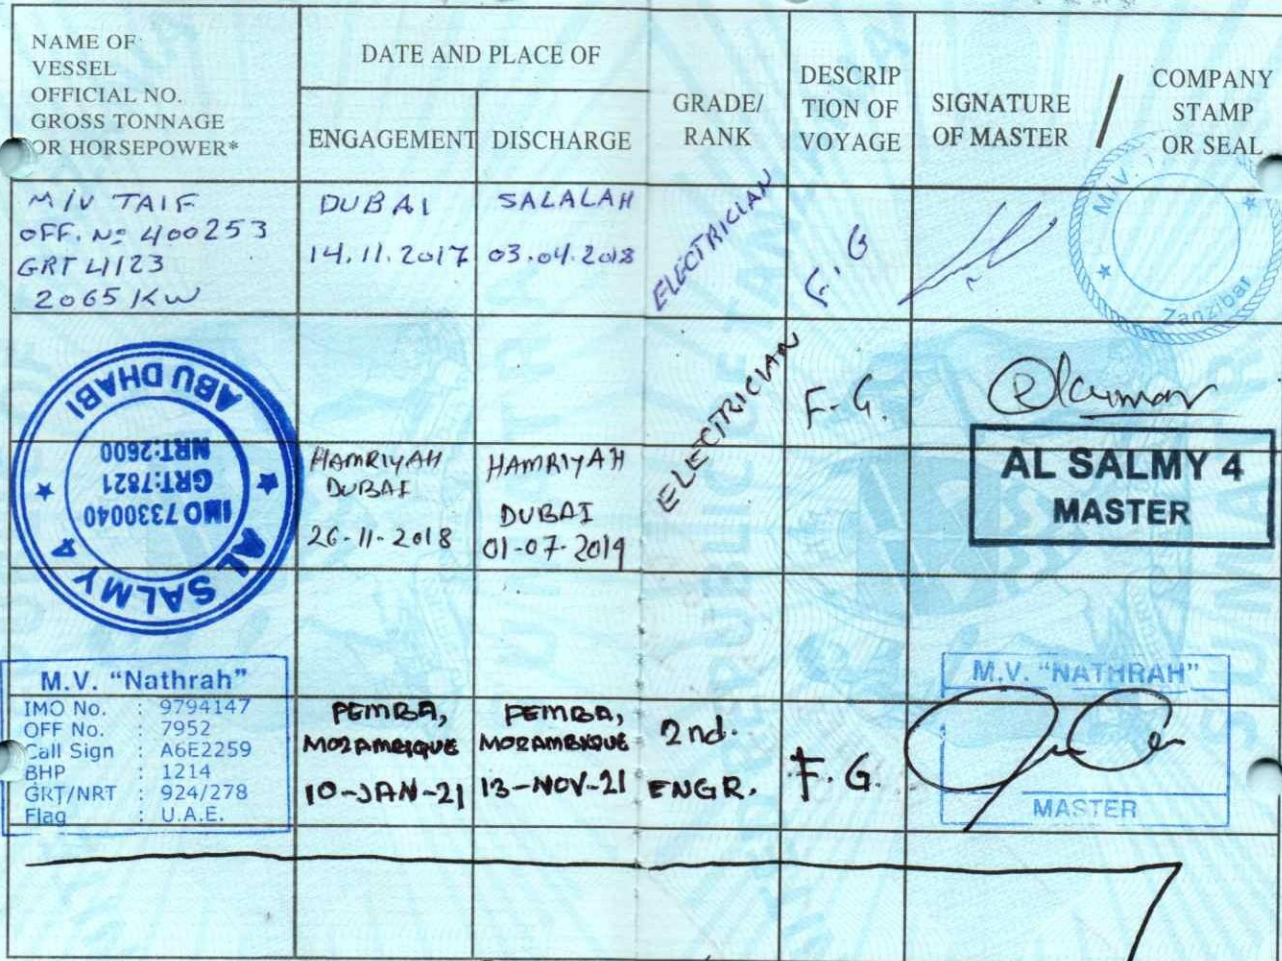 NAME OF
VESSEL
OFFICIAL NO.
GROSS TONNAGE
OR HORSEPOWER*
DATE AND PLACE OF
ENGAGEMENT
DISCHARGE
GRADE/
RANK
DESCRIP
TION OF
VOYAGE
SIGNATURE
OF MASTER
/
COMPANY
STAMP
OR SEAL
M/V TAIF
OFF. No 400253
GRT 4123
2065 KW
DUBAI
14.11.2017
SALALAH
03.04.2018
ELECTRICIAN
F.G
M.V.
Zanzibar
ABU DHABI
NRT:2600
GRT:7821
IMO7330040
AL SALMY 4
HAMRIYAH
DUBAI
26-11-2018
HAMRIYAH
DUBAI
01-07-2019
ELECTRICIAN
F.G.
AL SALMY 4
MASTER
M.V. "Nathrah"
IMO No. : 9794147
OFF No. : 7952
Call Sign : A6E2259
BHP : 1214
GRT/NRT : 924/278
Flag : U.A.E.
PEMBA,
MOZAMBIQUE
10-JAN-21
PEMBA,
MOZAMBIQUE
13-NOV-21
2nd.
ENGR.
F.G.
M.V. "NATHRAH"
MASTER